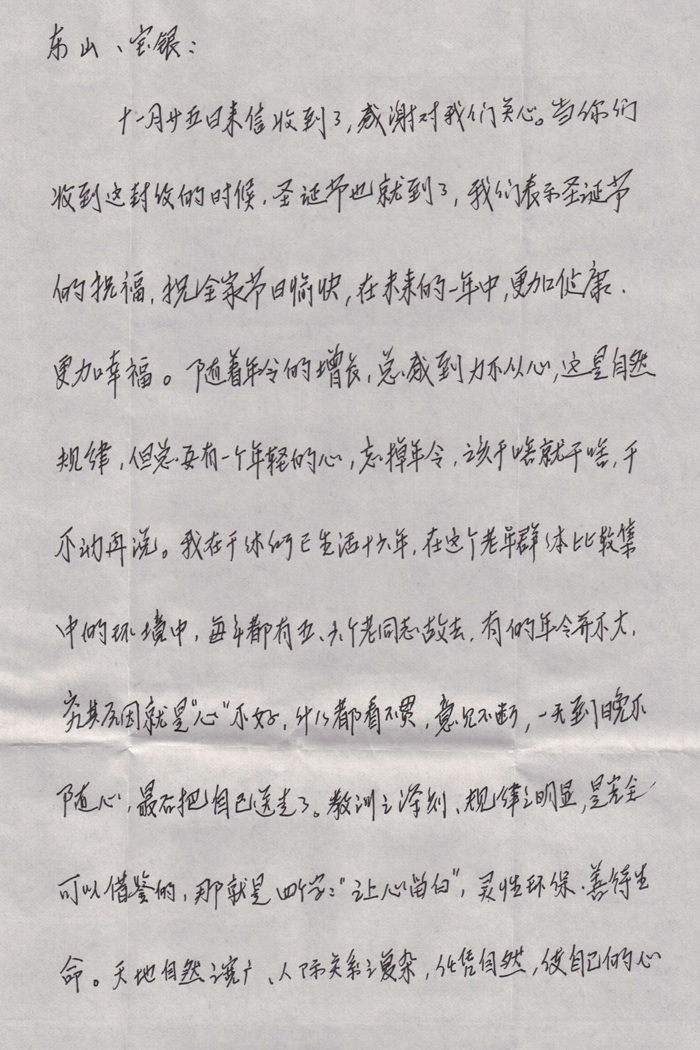 东山、宝银：
十一月廿五日来信收到了，感谢对我们关心。当你们
收到这封信的时候，圣诞节也就到了，我们表示圣诞节
的祝福，祝全家节日愉快，在未来的一年中，更加健康．
更加幸福。随着年令的增长，总感到力不从心，这是自然
规律，但总要有一个年轻的心，忘掉年令，该干啥就干啥，干
不动再说。我在干休所已生活十六年，在这个老年群体比较集
中的环境中，每年都有五、六个老同志故去，有的年令并不大，
究其原因就是“心”不好，什么都看不惯，意见不断，一天到晚不
随心，最后把自己送走了。教训之深刻、规律之明显，是完全
可以借鉴的，那就是四个字：“让心留白”，灵性环保．善待生
命。天地自然之宽广、人际关系之复杂，任凭自然，使自己的心